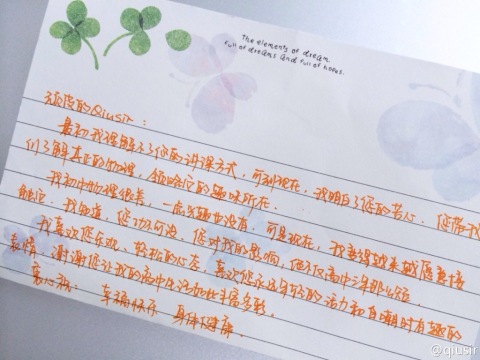 The elements of dream
full of dreams and full of hopes.
顽皮的Qiusir:
最初我误解了您的讲课方式,可到现在,我明白了您的苦心,您带我
们了解真正的物理,领略它的趣味所在.
我初中物理很差,一点兴趣也没有,可是现在,我变得越来越愿意接
触它.我知道,您功不可没,您对我的影响,绝不仅高中三年那么短.
我喜欢您乐观,轻松的心态,喜欢您永远年轻的活力和自嘲时有趣的
表情,谢谢您让我的高中生活如此丰富多彩.
衷心祝: 幸福快乐 身体健康.
@qiusir